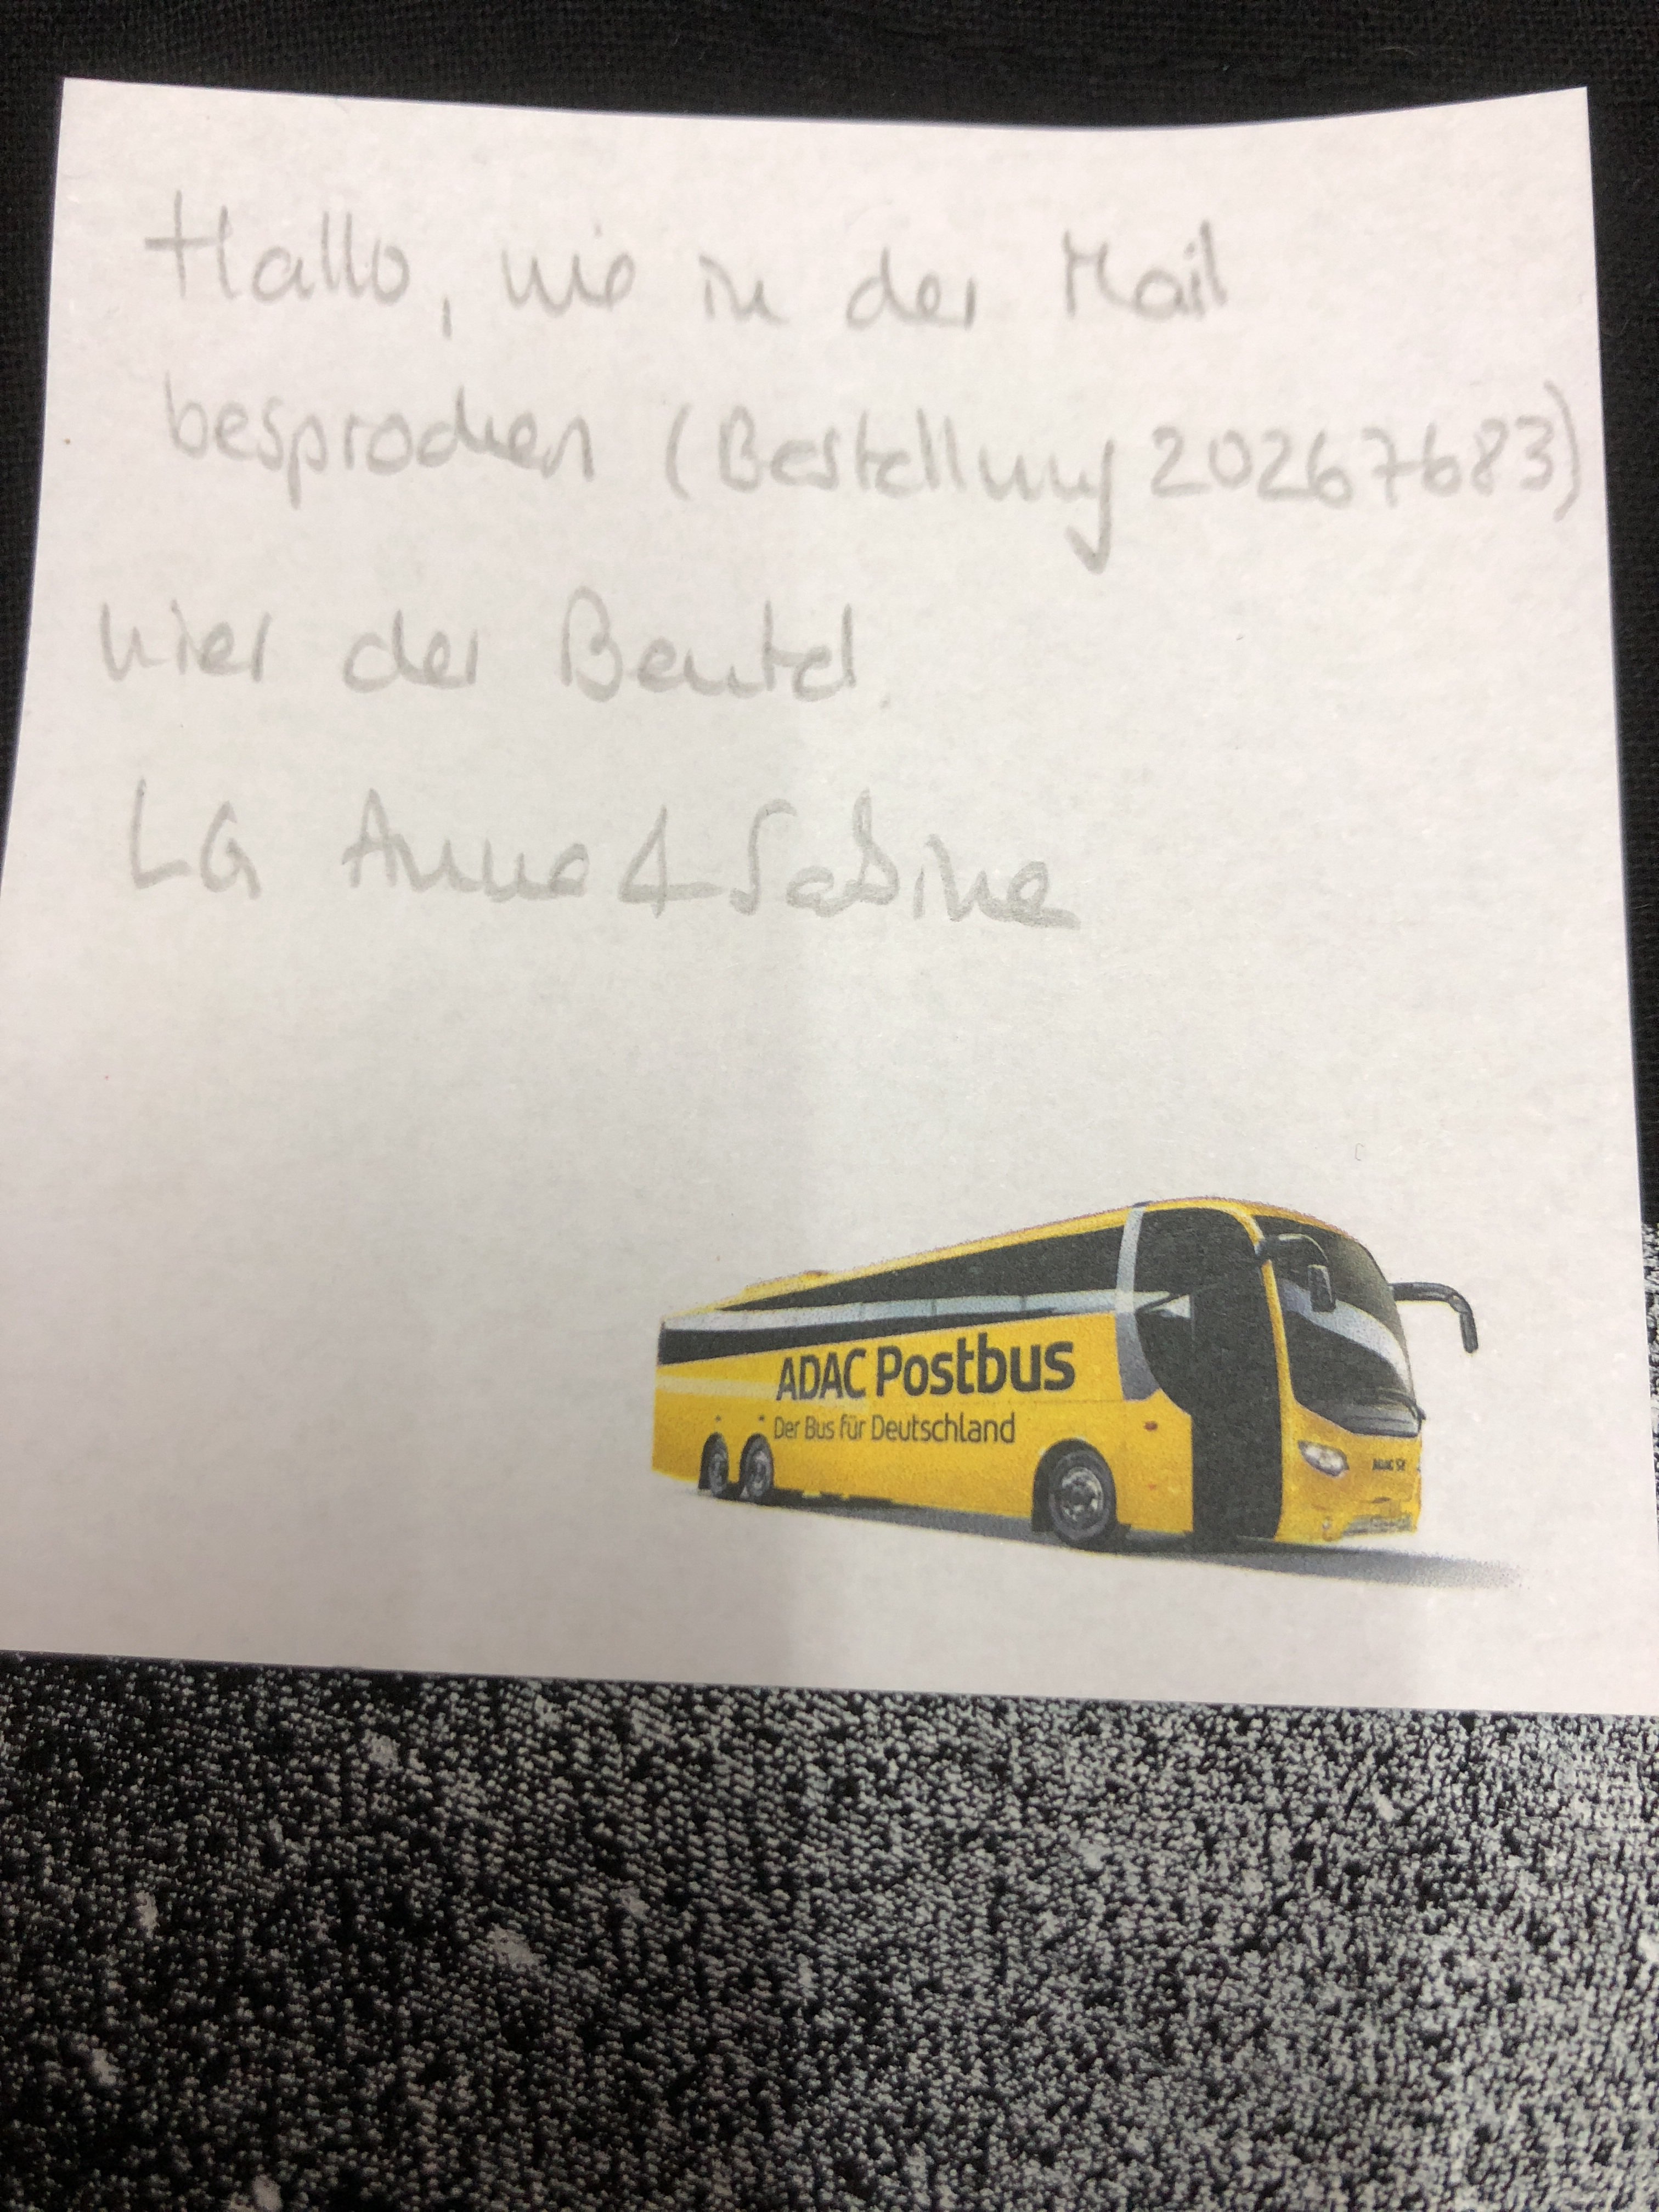 Hallo, wie in der Mail
besprochen (Bestellung 20267683)
hier der Beutel.
LG Anne & Sabine
ADAC Postbus
Der Bus für Deutschland